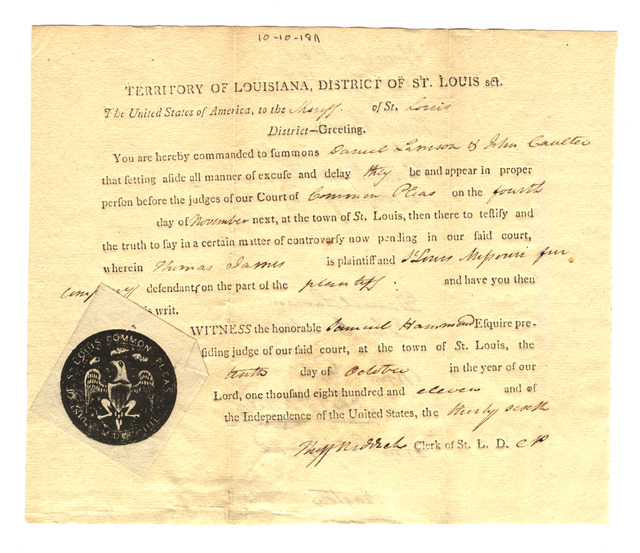 10-10-1811
TERRITORY OF LOUISIANA, DISTRICT OF ST. LOUIS sct.
The United States of America, to the Sheriff of St. Louis
District—Greeting.
You are hereby commanded to summons Daniel Lamson & John Caulter
that setting aside all manner of excuse and delay they be and appear in proper
person before the judges of our Court of Common Pleas on the fourth
day of November next, at the town of St. Louis, then there to testify and
the truth to say in a certain matter of controversy now pending in our said court,
wherein Thomas James is plaintiff and St Louis Missouri fur
company defendants on the part of the plaintiff. and have you then
this writ.
WITNESS the honorable Samuel Hammond Esquire pre-
siding judge of our said court, at the town of St. Louis, the
tenth day of October in the year of our
Lord, one thousand eight hundred and eleven and of
the Independence of the United States, the thirty sixth
Thos Riddick Clerk of St. L. D. C P
ST LOUIS COMMON PLEAS